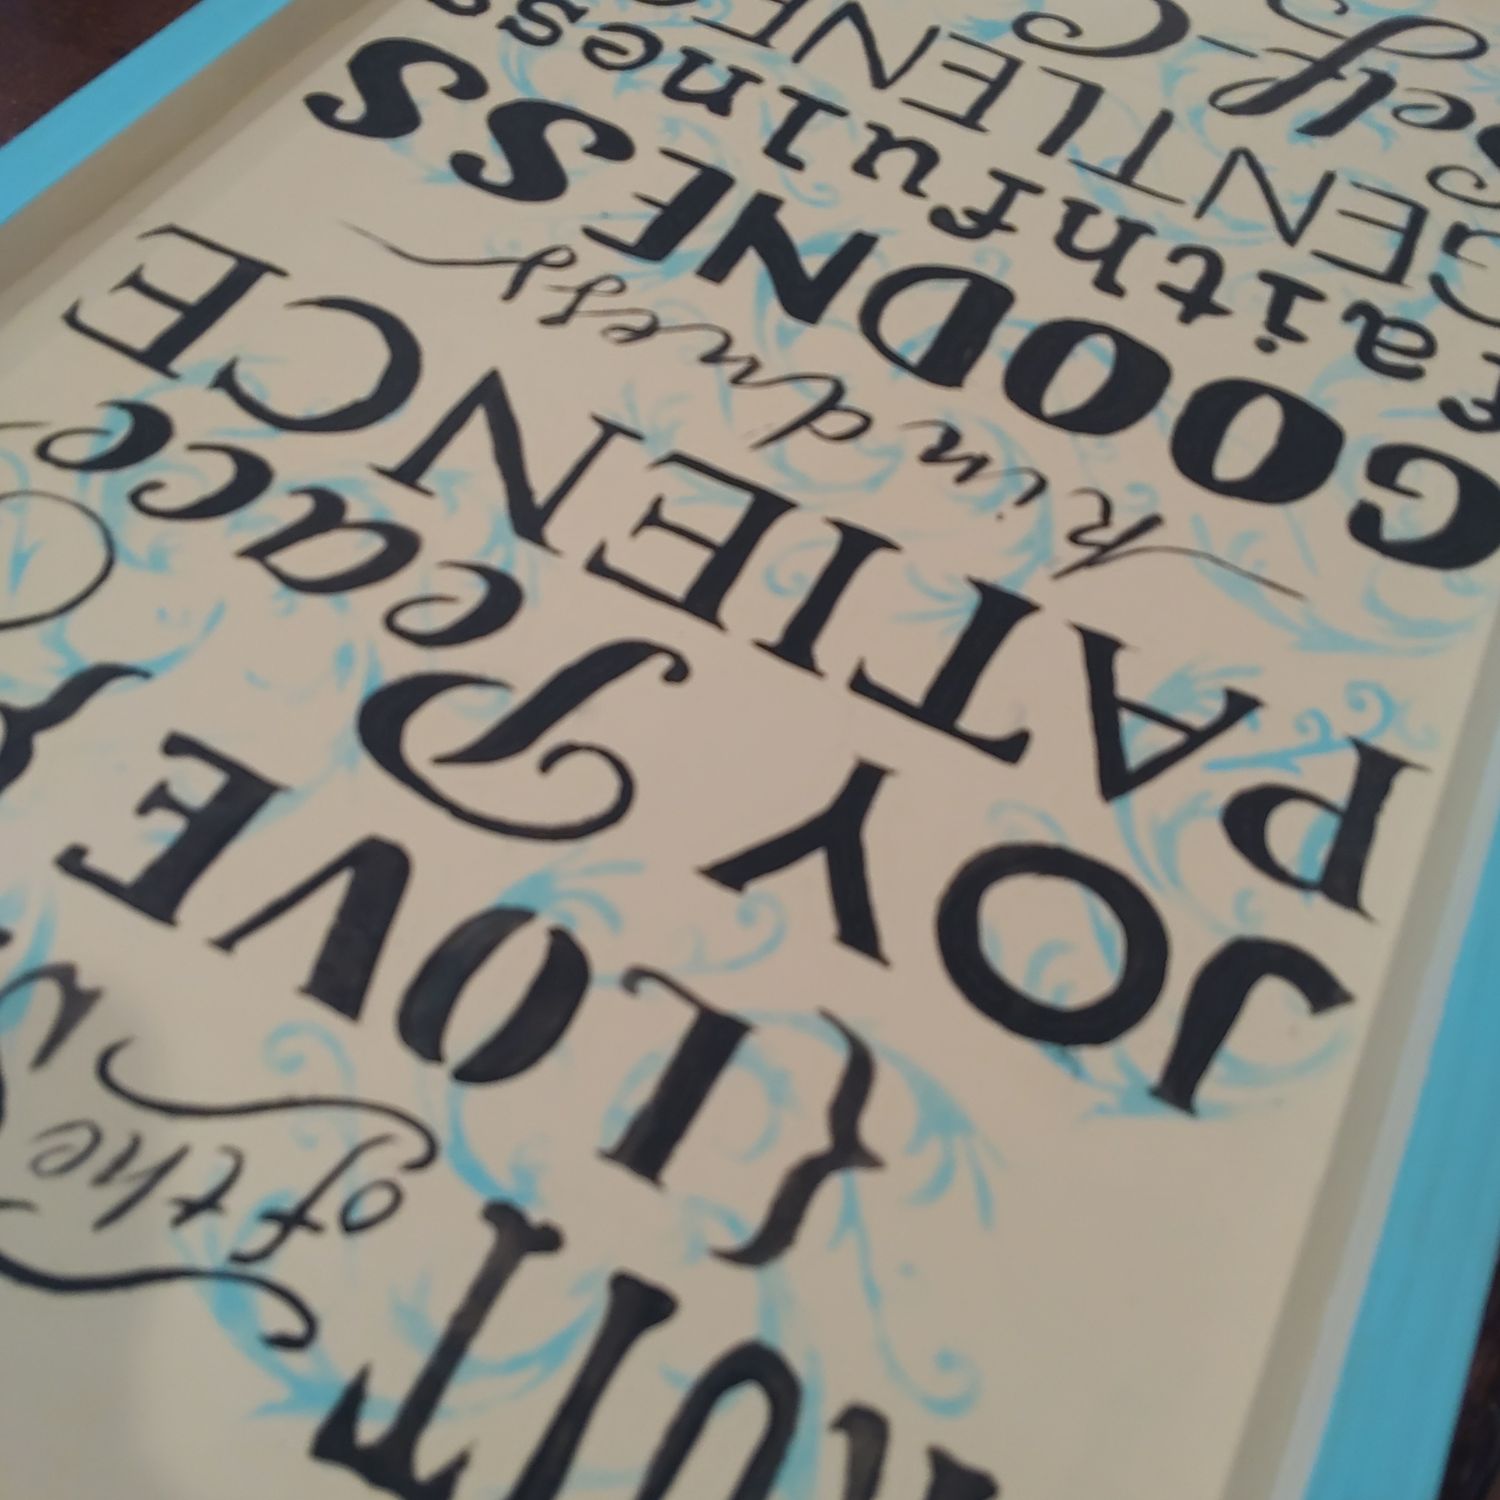 UIT of the
{LOVE}
JOY Peace
PATIENCE
kindness
GOODNESS
faithfulness
GENTLENE
Self-C